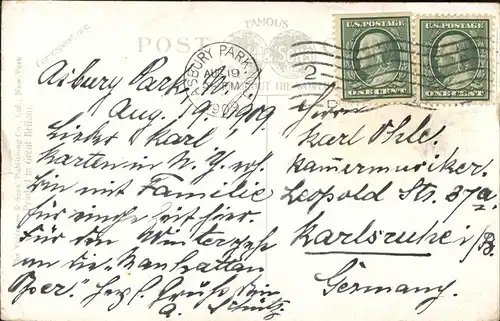 Correspondence.
POST
FAMOUS
U.S. POSTAGE
ONE CENT
U.S. POSTAGE
ONE CENT
ASBURY PARK, N.J.
AUG 19
1909
2
Publishing Co., Ltd., New York
Printed in Great Britain.
Asbury Park
Aug. 19. 1909
Lieber Karl!
Karten in N.Y. erh.
bin mit Familie
für einige Zeit hier.
Für den Winter gehe
an die "Manhattan
Oper." Herzl. Gruß Dein
A. Schütz
Herrn
Karl Ohle.
Kammermusiker.
Leopold Str. 37a.
Karlsruhe i/B.
Germany.